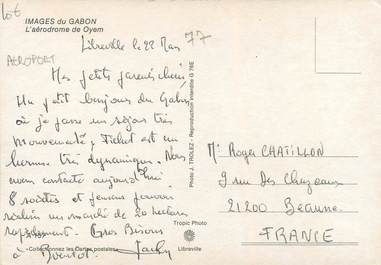 Lot
IMAGES du GABON
L'aérodrome de Oyem
Libreville le 22 Mars 77
AEROPORT
Mes petits parents chéris
Un petit bonjour du Gabon
où je passe un séjour très
mouvementé, est un
homme très dynamique. Nous
avons contacté aujourd'hui
8 sociétés et pensons pouvoir
réaliser un marché de 20 hectares
rapidement. Gros Bisous
à Bientôt. Jacky
«Collectionnez les Cartes postales»
Photo J. TROLEZ - Reproduction interdite G 76E
Tropic Photo
Libreville
Mr Roger CHATILLON
9 rue Des Chazeaux
21200 Beaune
FRANCE